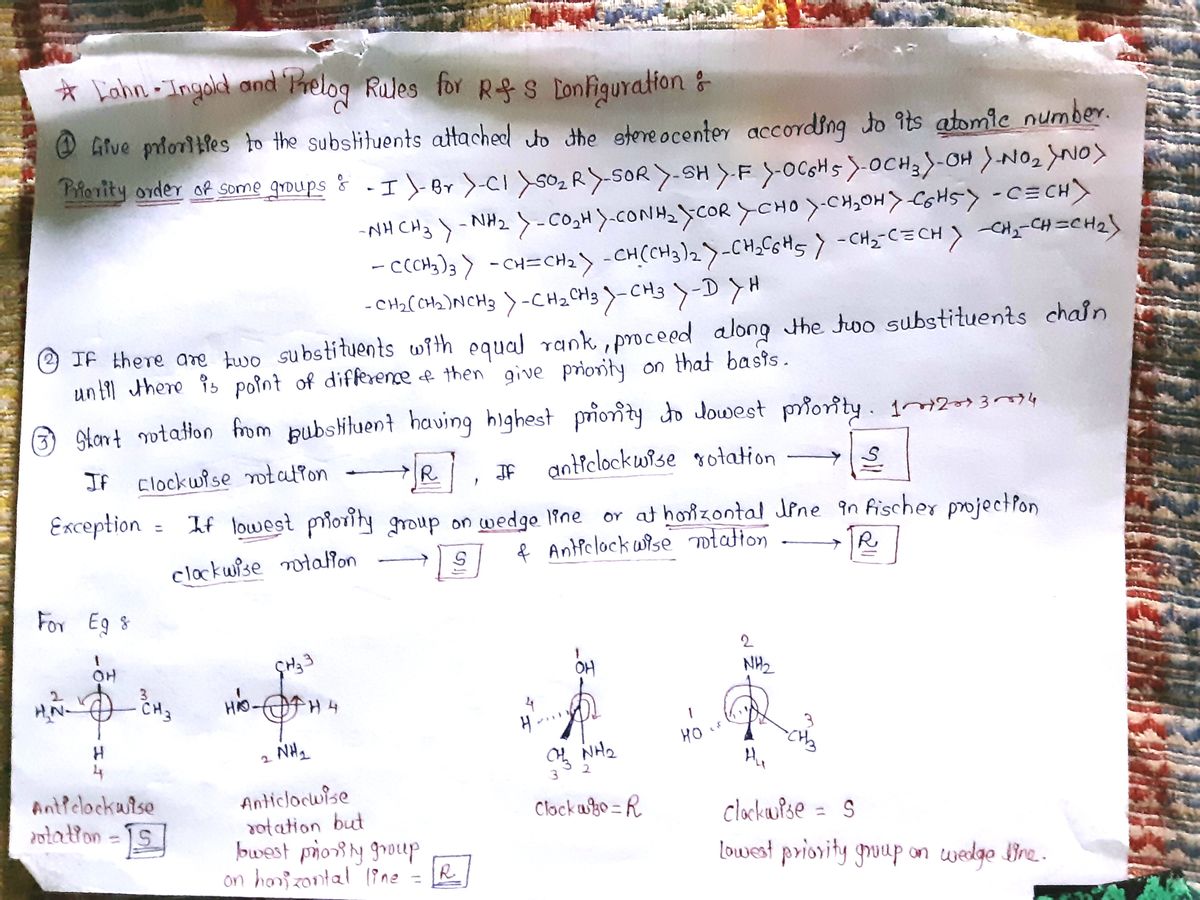 ☆ Cahn-Ingold and Prelog Rules for R & S Configuration :
① Give priorities to the substituents attached to the stereocenter according to its atomic number.
Priority order of some groups : -I >-Br >-Cl >SO₂R >-SOR >-SH >-F >-OC₆H₅ >-OCH₃ >-OH >-NO₂ >NO >
-NHCH₃ > -NH₂ > -CO₂H >-CONH₂ >COR >-CHO >-CH₂OH >-C₆H₅ > -C≡CH >
-C(CH₃)₃ > -CH=CH₂ > -CH(CH₃)₂ >-CH₂C₆H₅ > -CH₂-C≡CH > -CH₂-CH=CH₂ >
-CH₂(CH₂)NCH₃ >-CH₂CH₃ >-CH₃ >-D >H
② If there are two substituents with equal rank, proceed along the two substituents chain
until there is point of difference & then give priority on that basis.
③ Start rotation from substituent having highest priority to lowest priority. 1→2→3→4
If clockwise rotation → R , If anticlockwise rotation → S
Exception = If lowest priority group on wedge line or at horizontal line in fischer projection
clockwise rotation → S & Anticlockwise rotation → R
For Eg :
1 OH
2 H₂N 3 CH₃
H 4
CH₃ 3
1 HO H 4
2 NH₂
1 OH
4 H
CH₃ 3 NH₂ 2
2 NH₂
1 HO 3 CH₃
H 4
Anticlockwise
rotation = S
Anticlockwise
rotation but
lowest priority group
on horizontal line = R
Clockwise = R
Clockwise = S
Lowest priority group on wedge line.